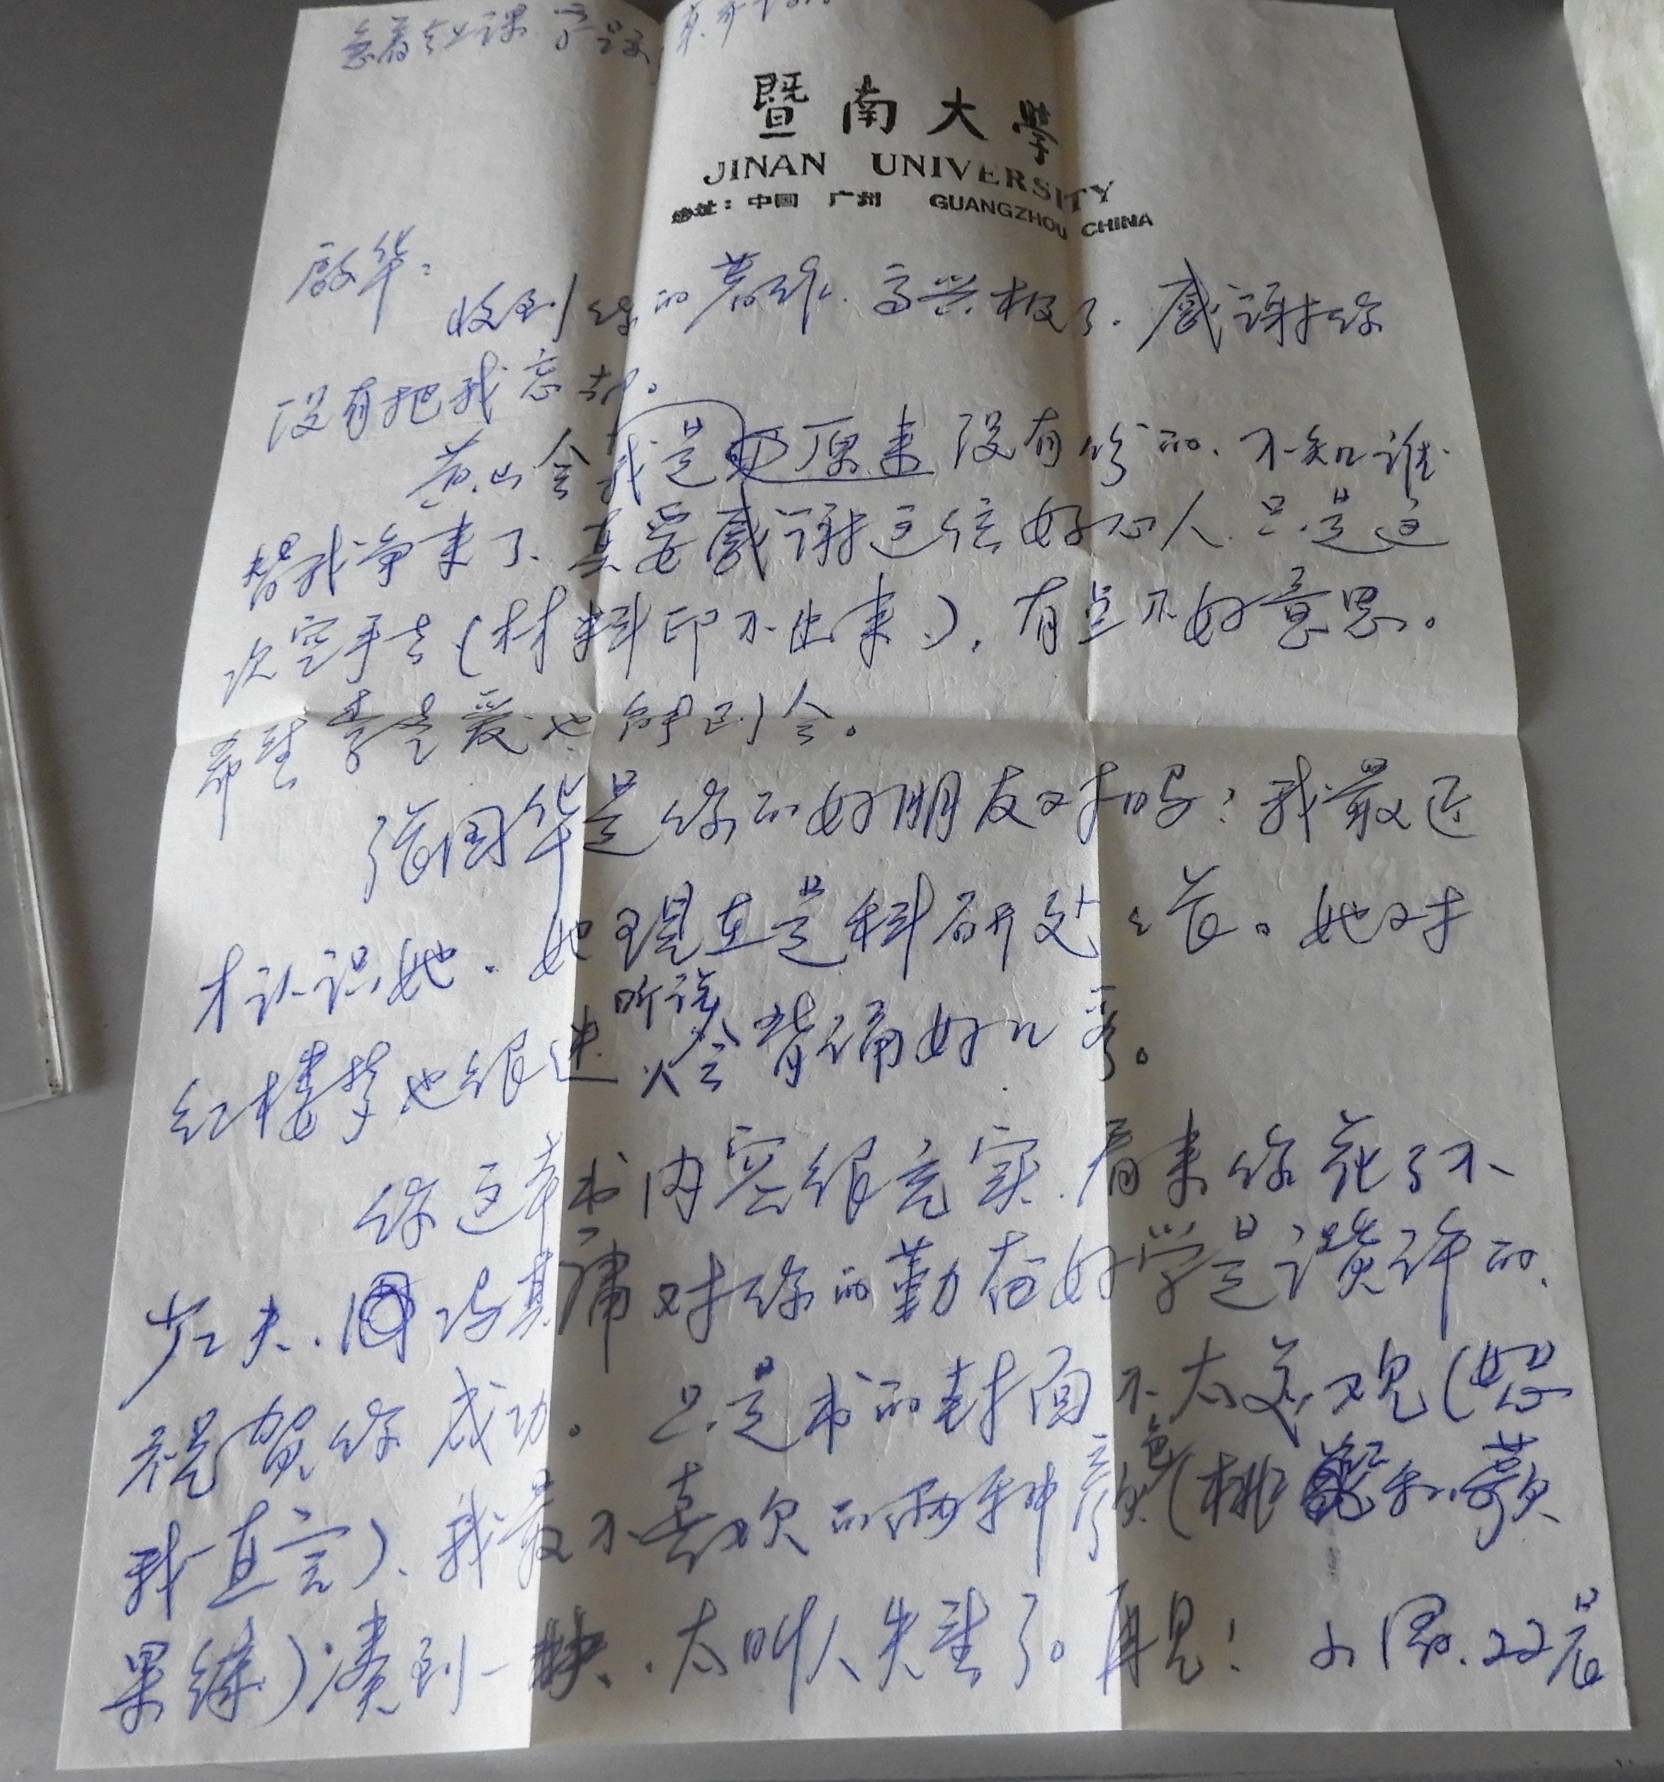 急着去上课 字误
暨南大學
JINAN UNIVERSITY
地址：中国 广州 GUANGZHOU CHINA
启华：
收到你的著作、高兴极了、感谢你
没有把我忘却。
黄山会我是原来没有份的、不知谁
替我争来了、真要感谢这位好心人、只是这
次空手去（材料印不出来）、有点不好意思。
希望李是爱也能到会。
张国华是你的好朋友对吗？我最近
才认识她、她现在是科研处长。她对
红楼梦也很迷、听说会背诵好几章。
你这本书内容很充实、看来你花了不
少工夫、冯其庸对你的勤奋好学是讚许的、
祝贺你成功。只是书的封面不太美观（恕
我直言）、我最不喜欢的两种颜色（桃红和蘋
果绿）凑到一块、太叫人失望了。再见！ 小周、22晨